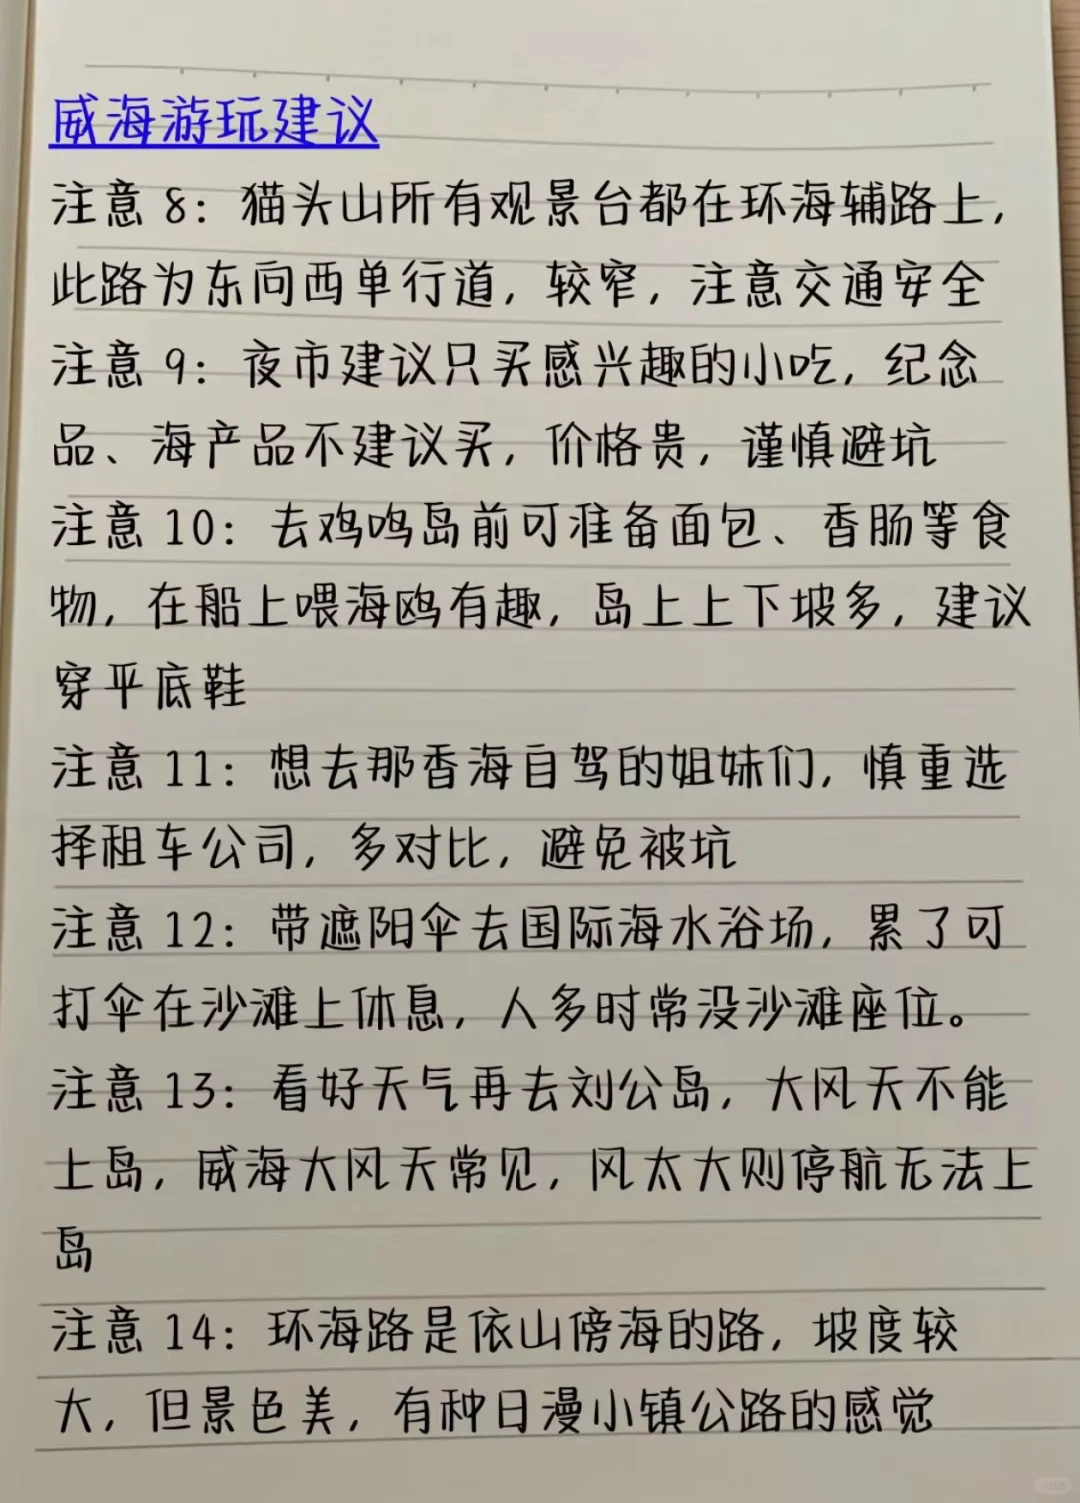 威海游玩建议
注意 8：猫头山所有观景台都在环海辅路上，
此路为东向西单行道，较窄，注意交通安全
注意 9：夜市建议只买感兴趣的小吃，纪念
品、海产品不建议买，价格贵，谨慎避坑
注意 10：去鸡鸣岛前可准备面包、香肠等食
物，在船上喂海鸥有趣，岛上上下坡多，建议
穿平底鞋
注意 11：想去那香海自驾的姐妹们，慎重选
择租车公司，多对比，避免被坑
注意 12：带遮阳伞去国际海水浴场，累了可
打伞在沙滩上休息，人多时常没沙滩座位。
注意 13：看好天气再去刘公岛，大风天不能
上岛，威海大风天常见，风太大则停航无法上
岛
注意 14：环海路是依山傍海的路，坡度较
大，但景色美，有种日漫小镇公路的感觉